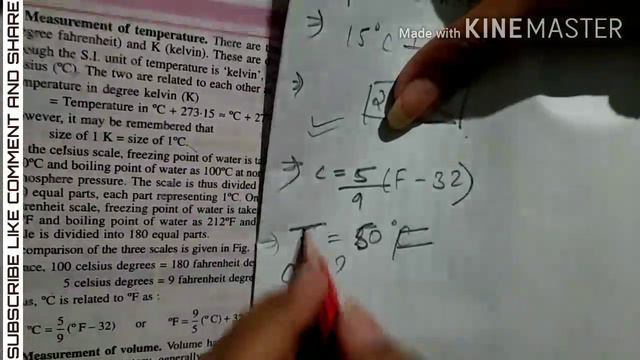 SUBSCRIBE LIKE COMMENT AND SHARE
Made with KINEMASTER
Measurement of temperature. There are
egree fahrenheit) and K (kelvin). These are
ough the S.I. unit of temperature is 'kelvin',
sius (°C). The two are related to each other
mperature in degree kelvin (K)
= Temperature in °C + 273·15 ≈ °C + 27
owever, it may be remembered that
size of 1 K = size of 1°C.
the celsius scale, freezing point of water is
0°C and boiling point of water as 100°C at
mosphere pressure. The scale is thus divided
equal parts, each part representing 1°C. On
renheit scale, freezing point of water is take
°F and boiling point of water as 212°F and
le is divided into 180 equal parts.
comparison of the three scales is given in Fig.
nce, 100 celsius degrees = 180 fahrenheit de
5 celsius degrees = 9 fahrenheit degre
us, °C is related to °F as :
°C = 5/9 (°F – 32) or °F = 9/5 (°C) + 32
Measurement of volume. Volume ha
⇒ 15°C
⇒
⇒ C = 5/9 (F - 32)
⇒ T = 50°F
?